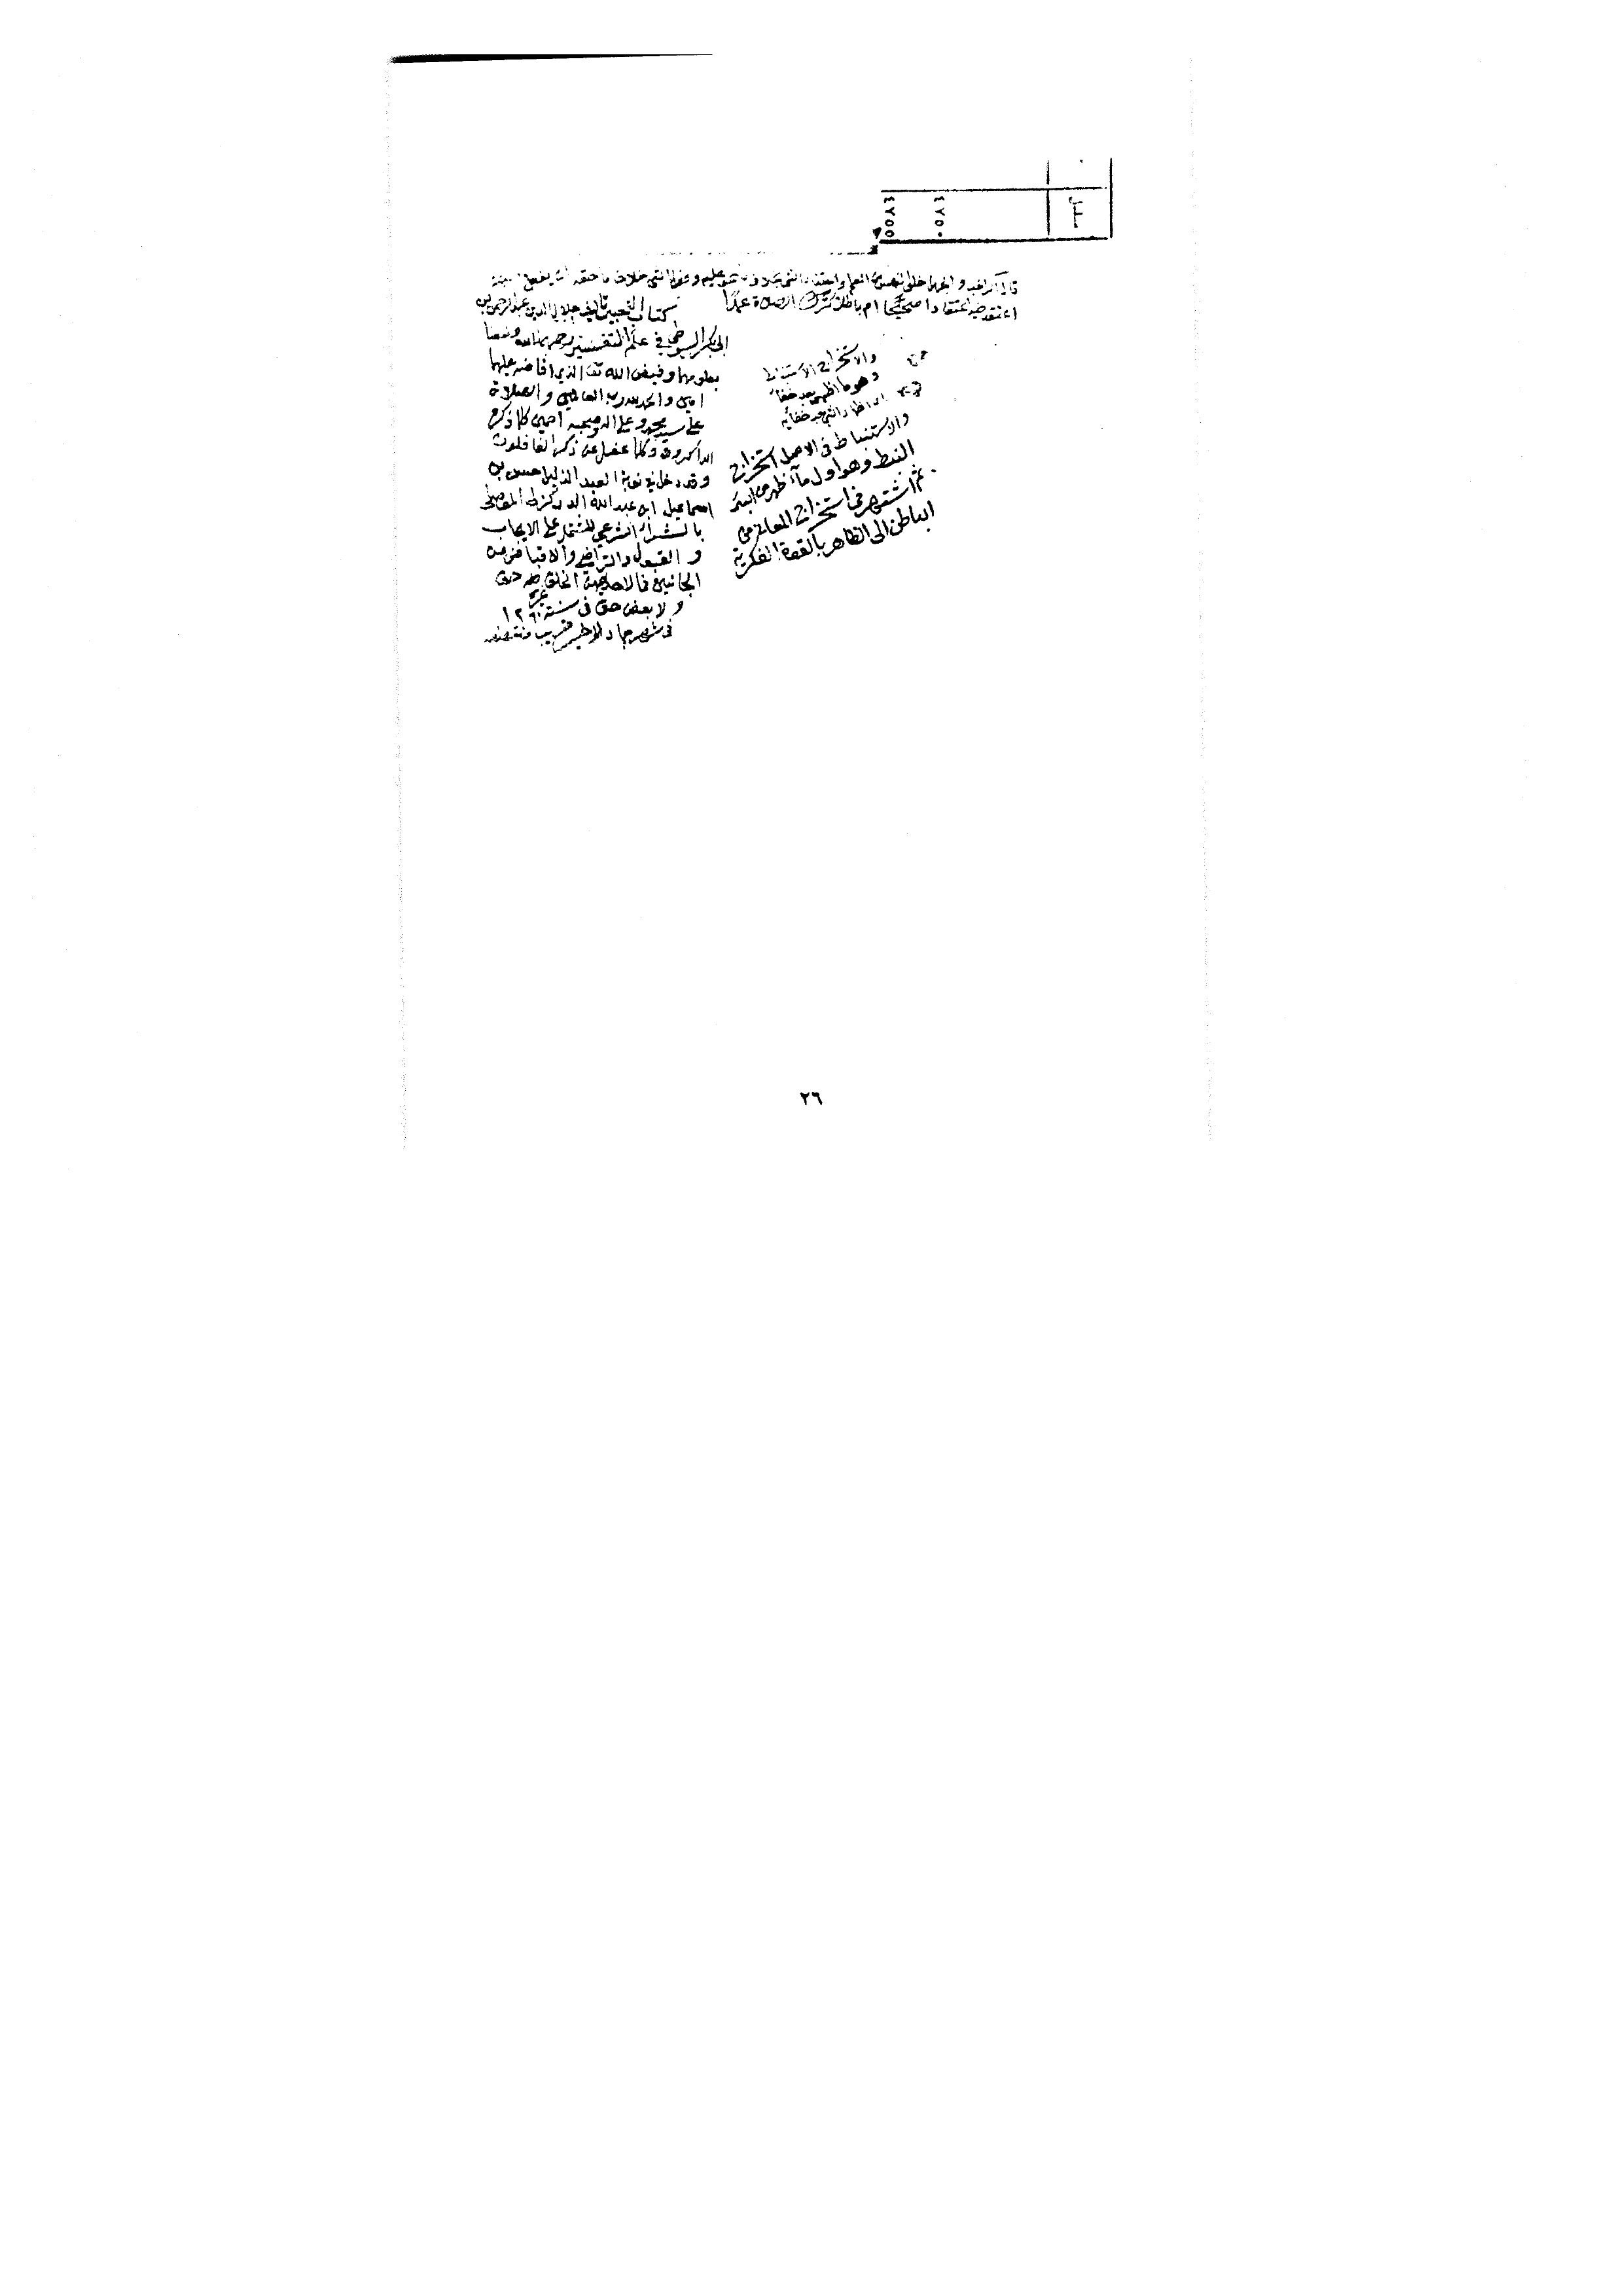 ٤٢٥٥
٤٢٥٠
قال الراغب و الجهل خلو النفس من العلم واعتقاد الشيء بخلاف ما هو عليه وفعل الشيء بخلاف ما حقه ان يفعل
اعتقد فيه اعتقادا صحيحا ام باطلا كترك الصلاة عمدا
كتاب التحبير تاليف جلال الدين عبد الرحمن بن
ابي بكر السيوطي في علم التفسير رحمهما الله ونفعنا
بعلومهما وفيض الله تعا الذي افاضه عليهما
امين والحمد لله رب العالمين والصلاة
على سيد محمد وعلى اله وصحبه اجمعين كلما ذكره
الذاكرون وكلما غفل عن ذكره الغافلون
وقد دخل في نوبة العبد الذليل حسن بن
اسماعيل ابن عبد الله الدركزلي الموصلي
بالشراء الشرعي المشتمل على الايجاب
و القبول والتراضي والاقباض من
الجانبين
ولا بعض حق في سنة ١٢٦٠
في شهر جماد الاخير
والاستخراج الاستنباط
وهو ما اظهر بعد خفائه
اظهار الشيء بعد خفائه
والاستنباط في الاصل استخراج
النبط وهو اول ما اظهر من البئر
ثم اشتهر في استخراج المعاني من
الباطن الى الظاهر بالقوة الفكرية
٢٦